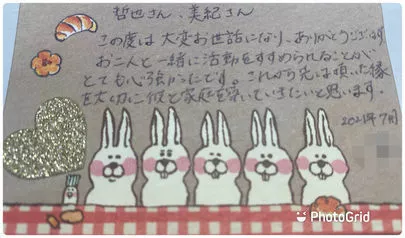 哲也さん、美紀さん
この度は大変お世話になり、ありがとうございます
お二人と一緒に活動をすすめられることが
とても心強かったです。これから先は頂いた縁
を大切に彼と家庭を築いていきたいと思います。
2021年7月
PhotoGrid